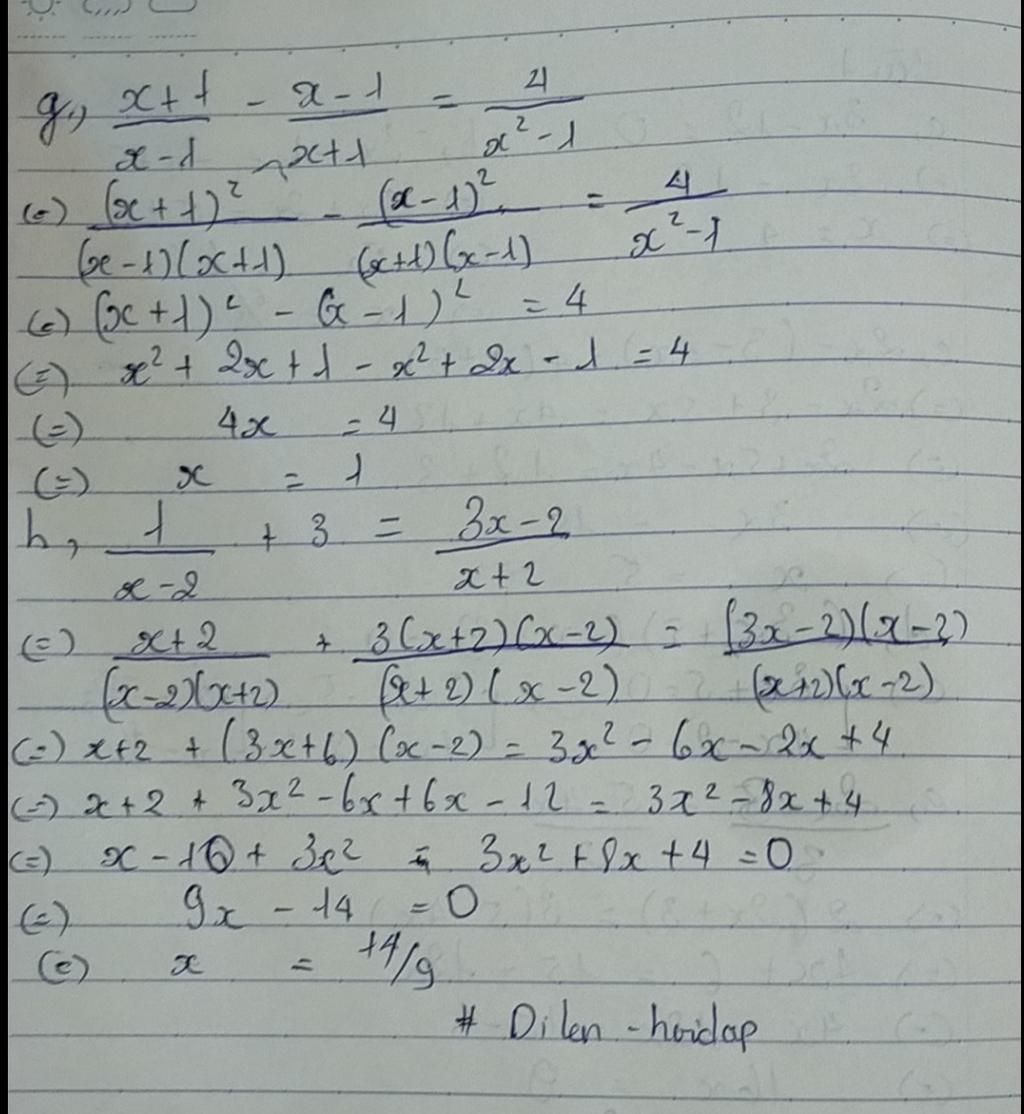 g,, x+1/x-1 - x-1/x+1 = 4/x²-1
(=) (x+1)²/(x-1)(x+1) - (x-1)²/(x+1)(x-1) = 4/x²-1
(=) (x+1)² - (x-1)² = 4
(=) x² + 2x + 1 - x² + 2x - 1 = 4
(=) 4x = 4
(=) x = 1
h, 1/x-2 + 3 = 3x-2/x+2
(=) x+2/(x-2)(x+2) + 3(x+2)(x-2)/(x+2)(x-2) = (3x-2)(x-2)/(x+2)(x-2)
(=) x+2 + (3x+6)(x-2) = 3x² - 6x - 2x + 4
(=) x+2 + 3x² - 6x + 6x - 12 = 3x² - 8x + 4
(=) x - 10 + 3x² - 3x² + 8x + 4 = 0
(=) 9x - 14 = 0
(=) x = 14/9
# Dilen - hoidap